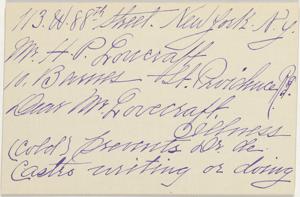 113. W. 88th Street. New York. N.Y.
Mr. H. P. Lovecraft
10. Barnes St. Providence R.I.
Dear Mr Lovecraft.
Illness
(cold) prevents Dr. de
Castro writing or doing